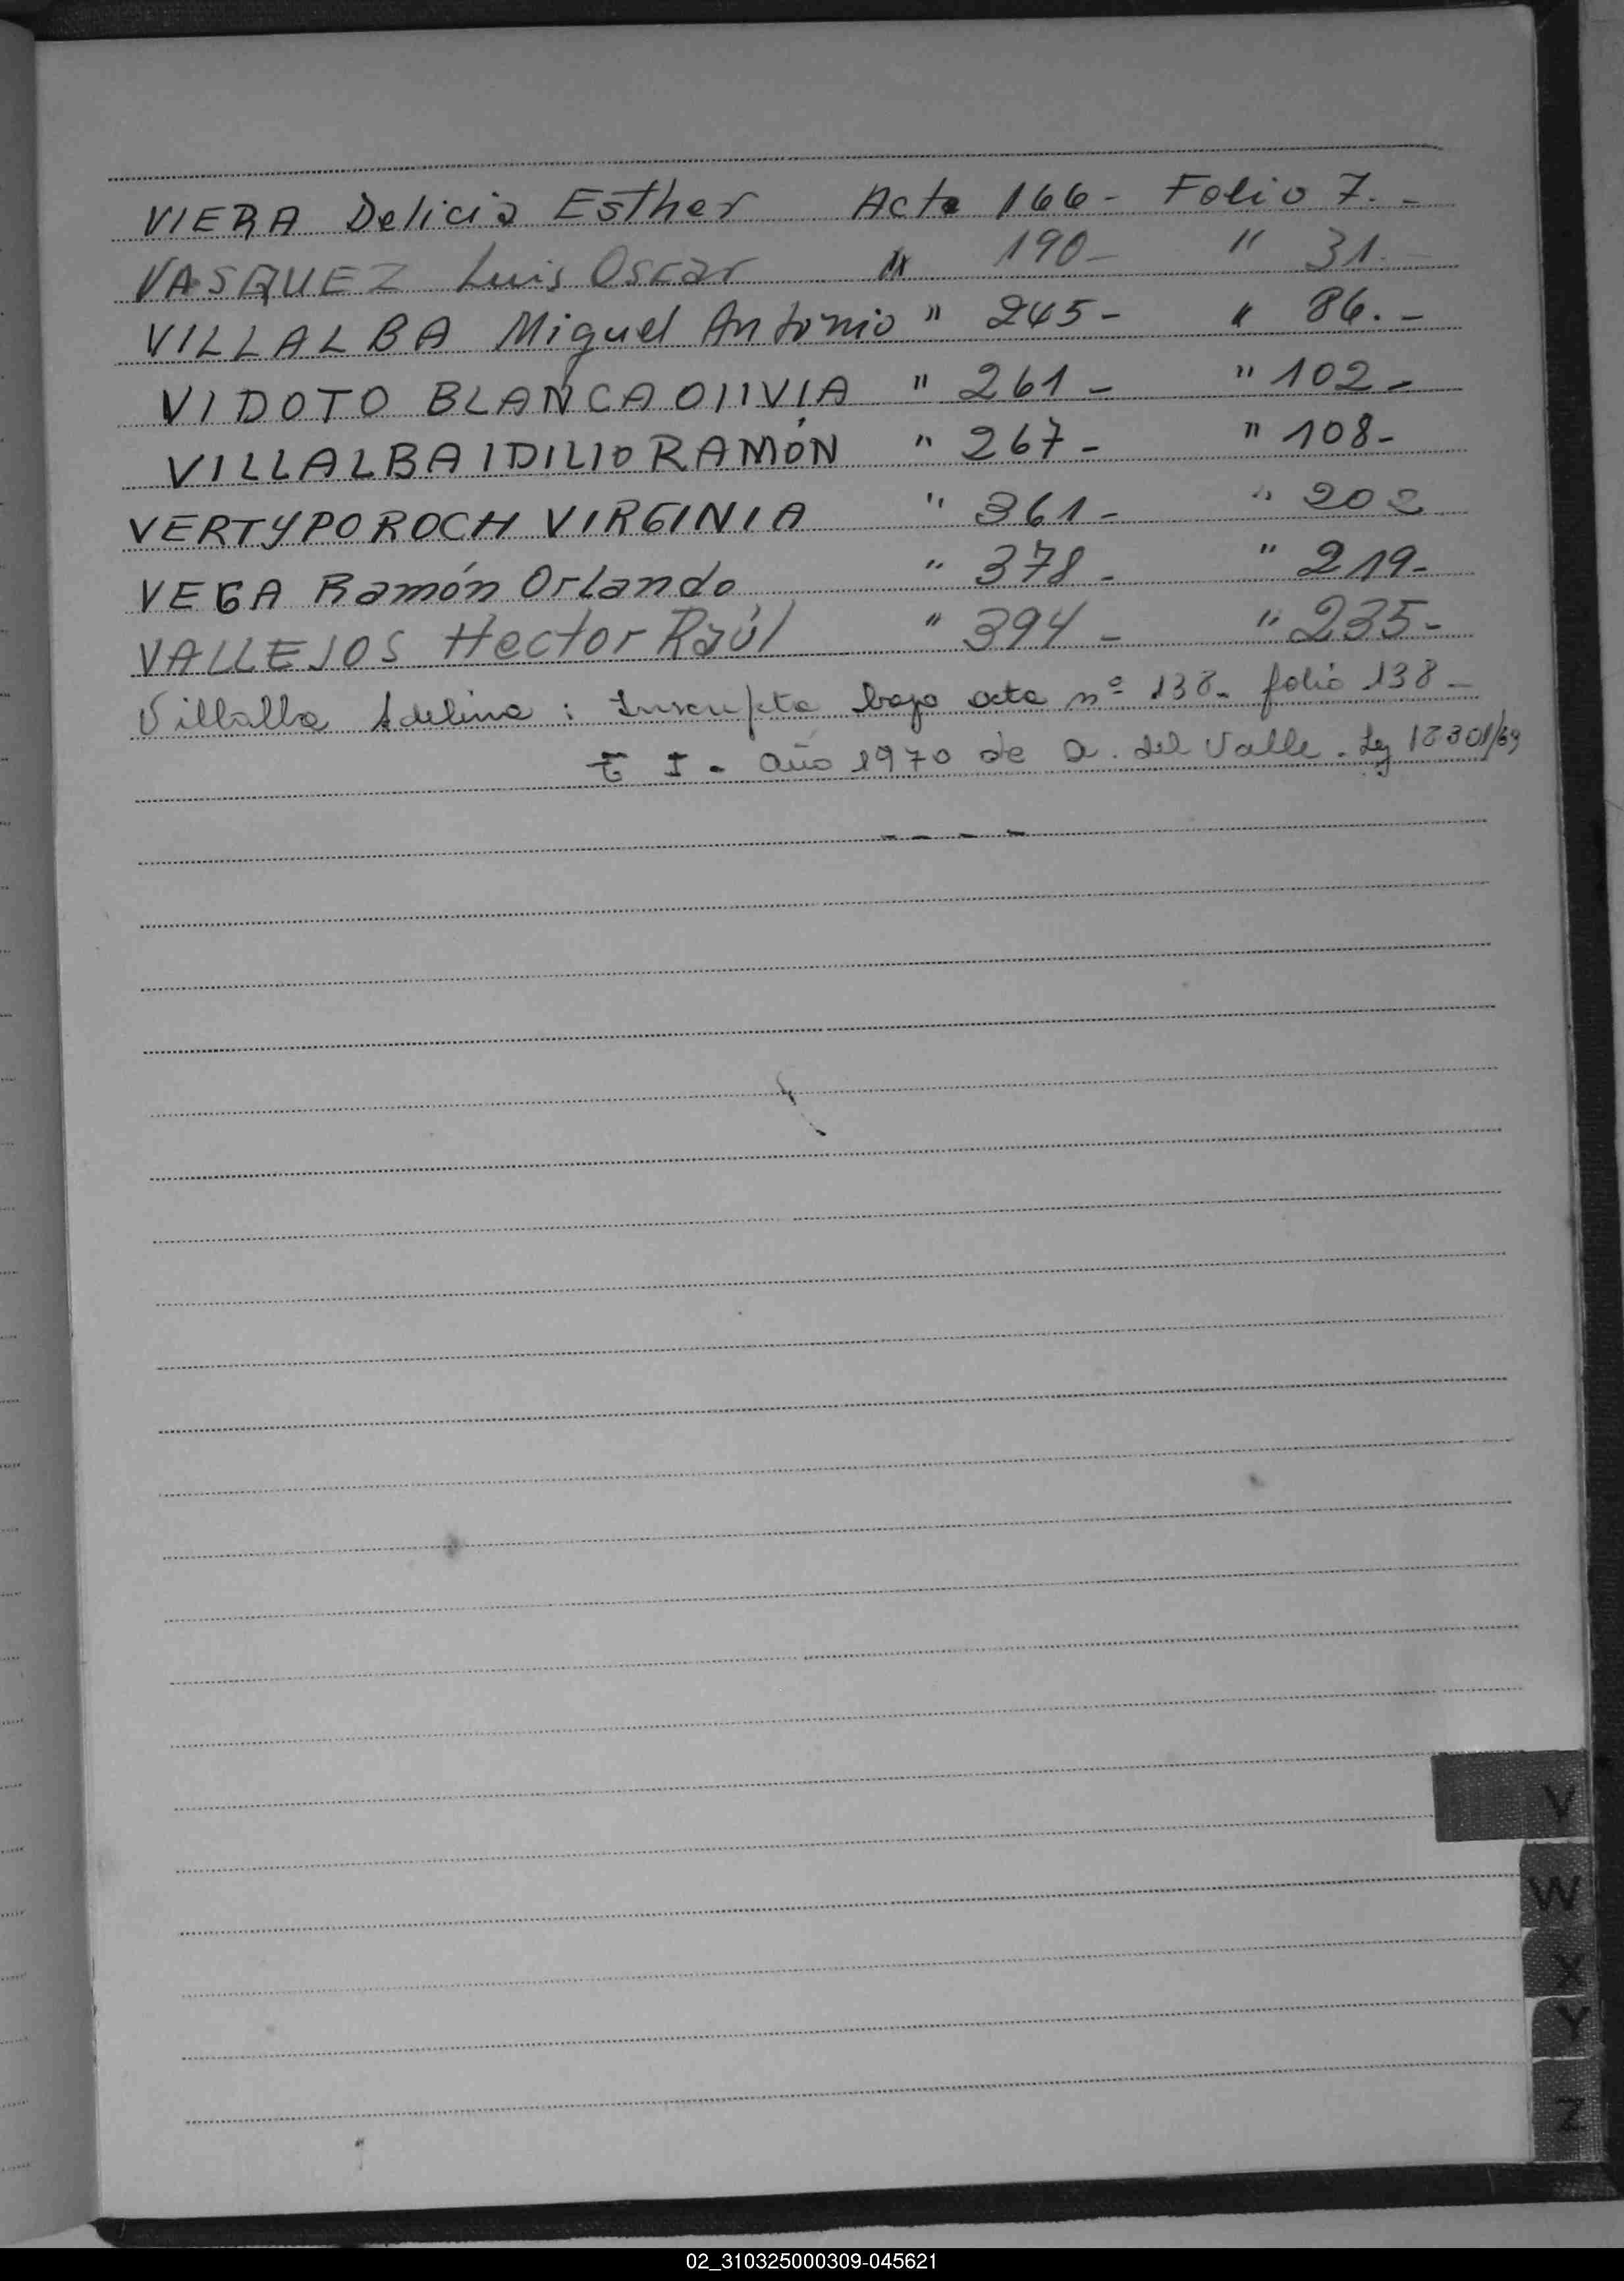 VIERA Delicia Esther Acta 166- Folio 7.-
VASQUEZ Luis Oscar " 190- " 31.-
VILLALBA Miguel Antonio " 245- " 86.-
VIDOTO BLANCA OLIVIA " 261- " 102-
VILLALBA IDILIO RAMÓN " 267- " 108-
VERTYPOROCH VIRGINIA " 361- " 202
VEGA Ramón Orlando " 378- " 219-
VALLEJOS Hector Raúl " 394- " 235-
Villalba Adelina : Inscripta bajo acta nº 138- folio 138-
T I - año 1970 de a. del Valle. Ley 18301/69
----
V
W
X
Y
Z
02_310325000309-045621